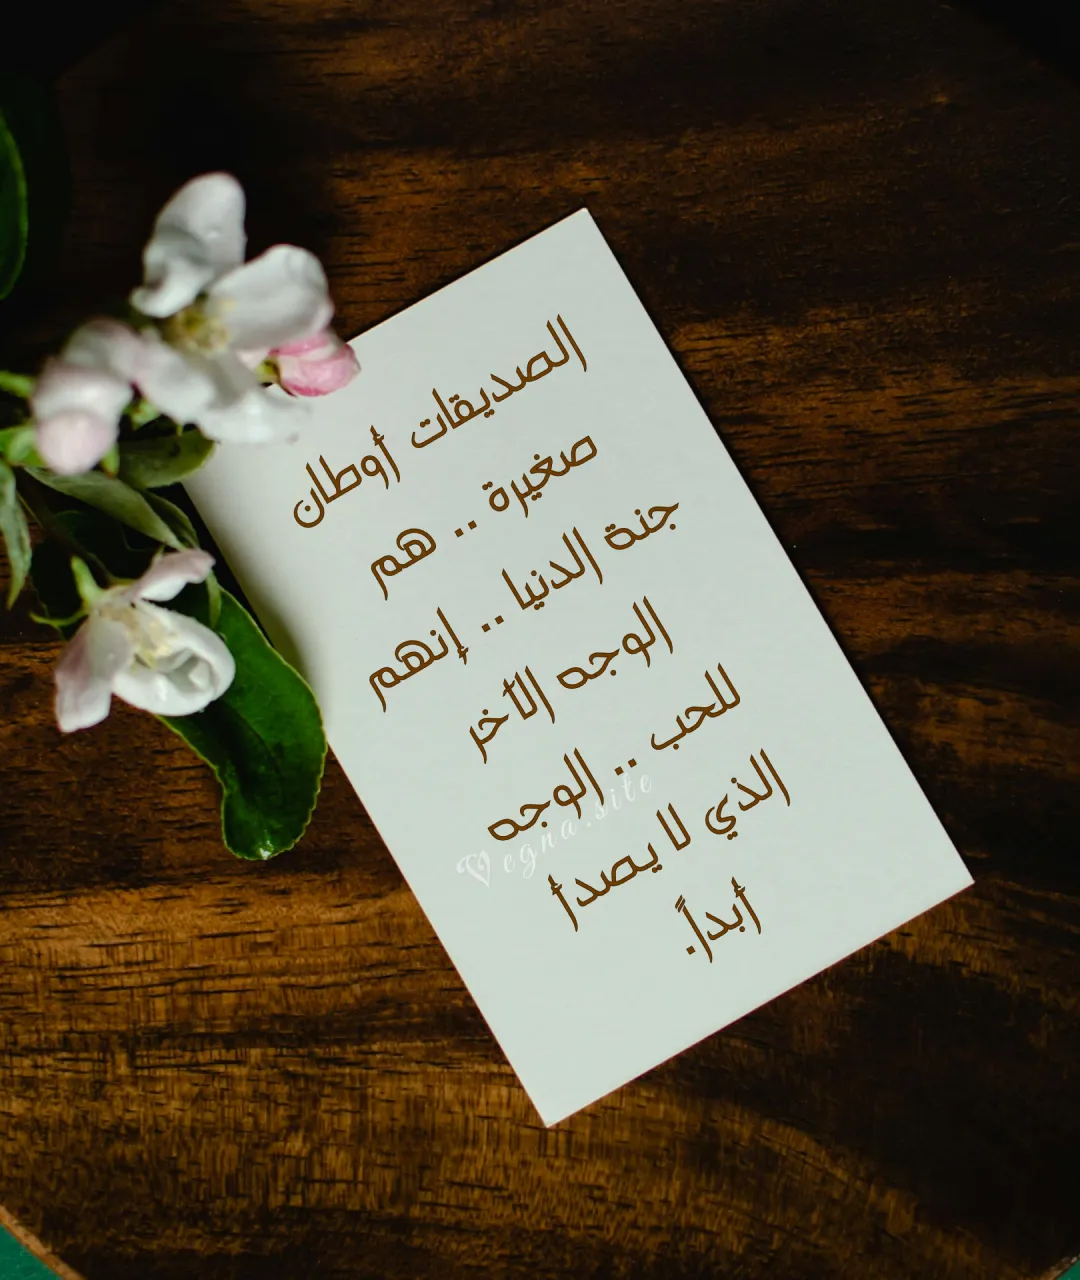 الصديقات أوطان
صغيرة .. هم
جنة الدنيا .. إنهم
الوجه الآخر
للحب .. الوجه
الذي لا يصدأ
أبداً.
Vegna.site